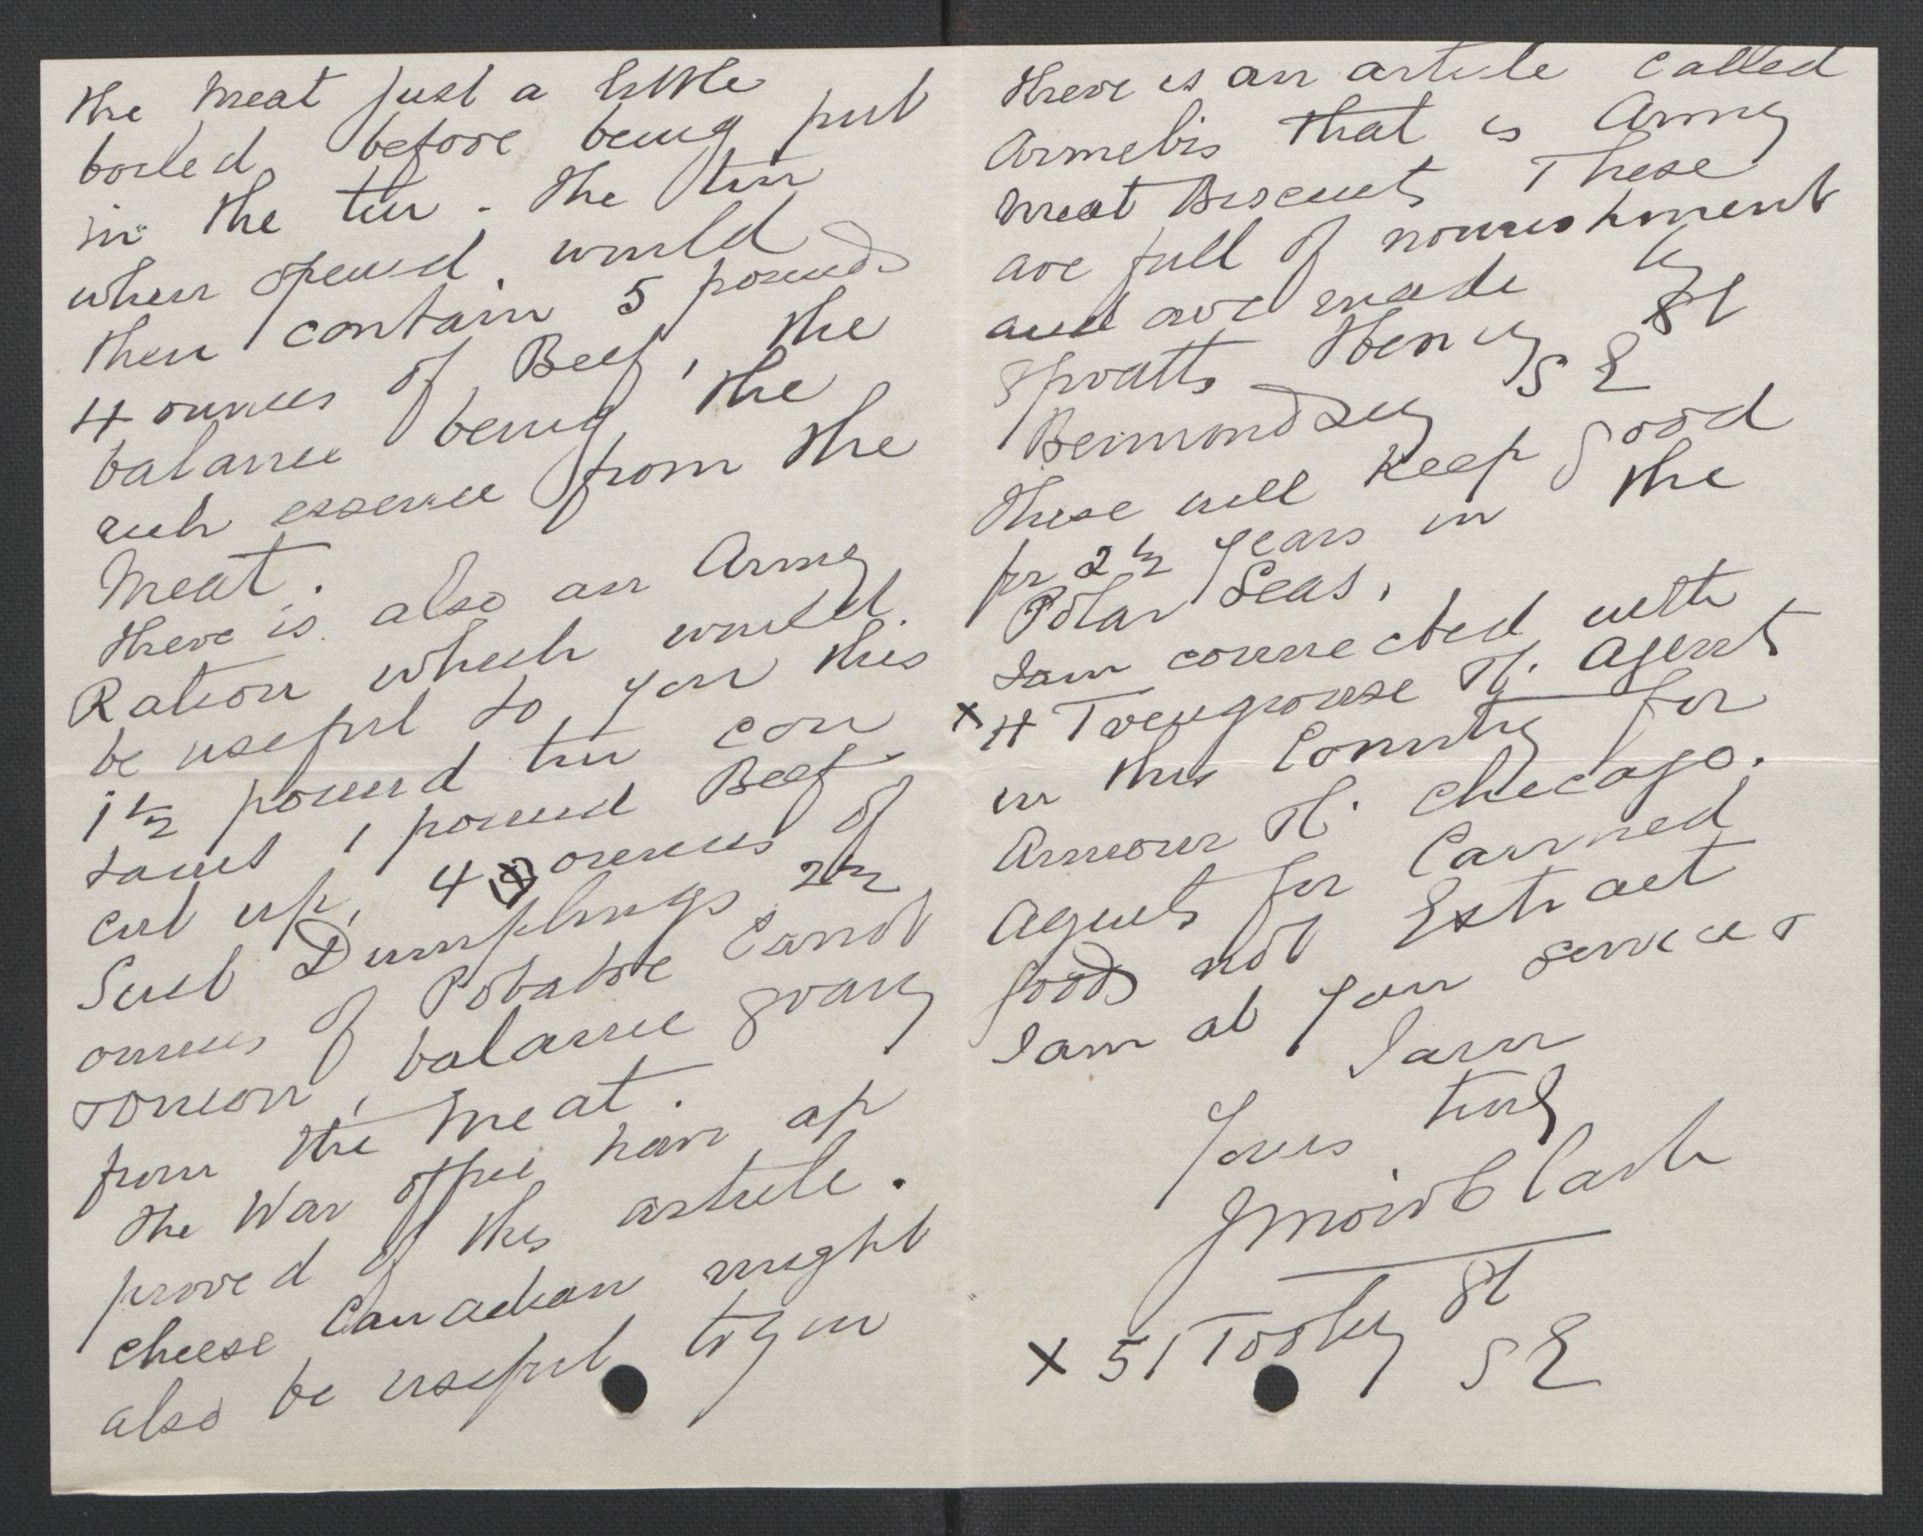 the meat just a little
boiled before being put
in the tin. The tin
when opened would
then contain 5 pounds
4 ounces of Beef, the
balance being the
rich essence from the
Meat.
There is also an Army
Ration which would
be useful to you this
1 1/2 pound tin con
tains 1 pound Beef
cut up, 4 ounces of
Suet Dumplings 2 1/2
ounces of Potatoe Carrot
& onion, balance gravy
from the Meat.
The War Office have ap
proved of this article.
Cheese Canadian might
also be useful try in
there is an article called
Armebis that is Army
Meat Biscuits These
are full of nourishment
and are made by
Spratts Henry St
Bermondsey S E
These will keep good
for 2 1/2 years in the
Polar Seas.
I am connected with
x H Trengrouse Co. Agents
in this Country for
Armour Co. Checago.
Agents for Canned
foods not Extract
I am at your service &
I am
Yours truly
J Moir Clark
x 51 Tooley St
S E